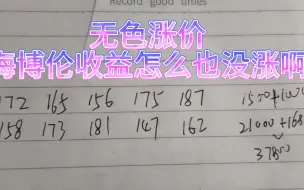 Record good times
无色涨价
海博伦收益怎么也没涨啊
172 165 156 175 187
158 173 181 147 162
21000+168
37800